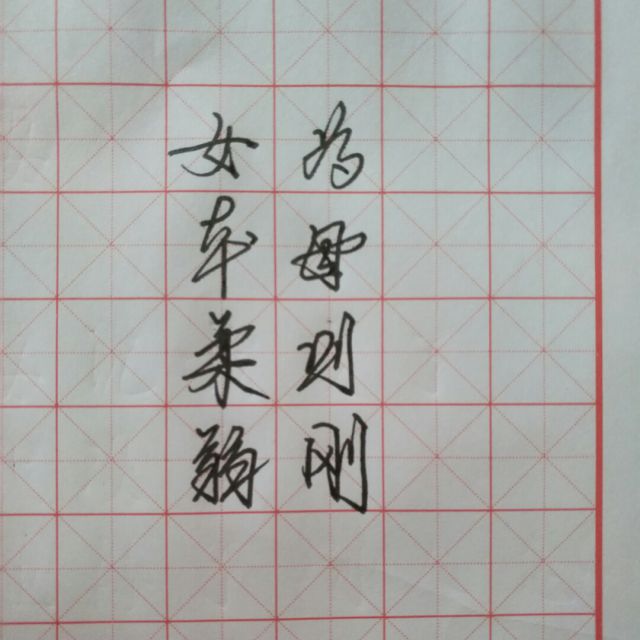 为母则刚
女本柔弱